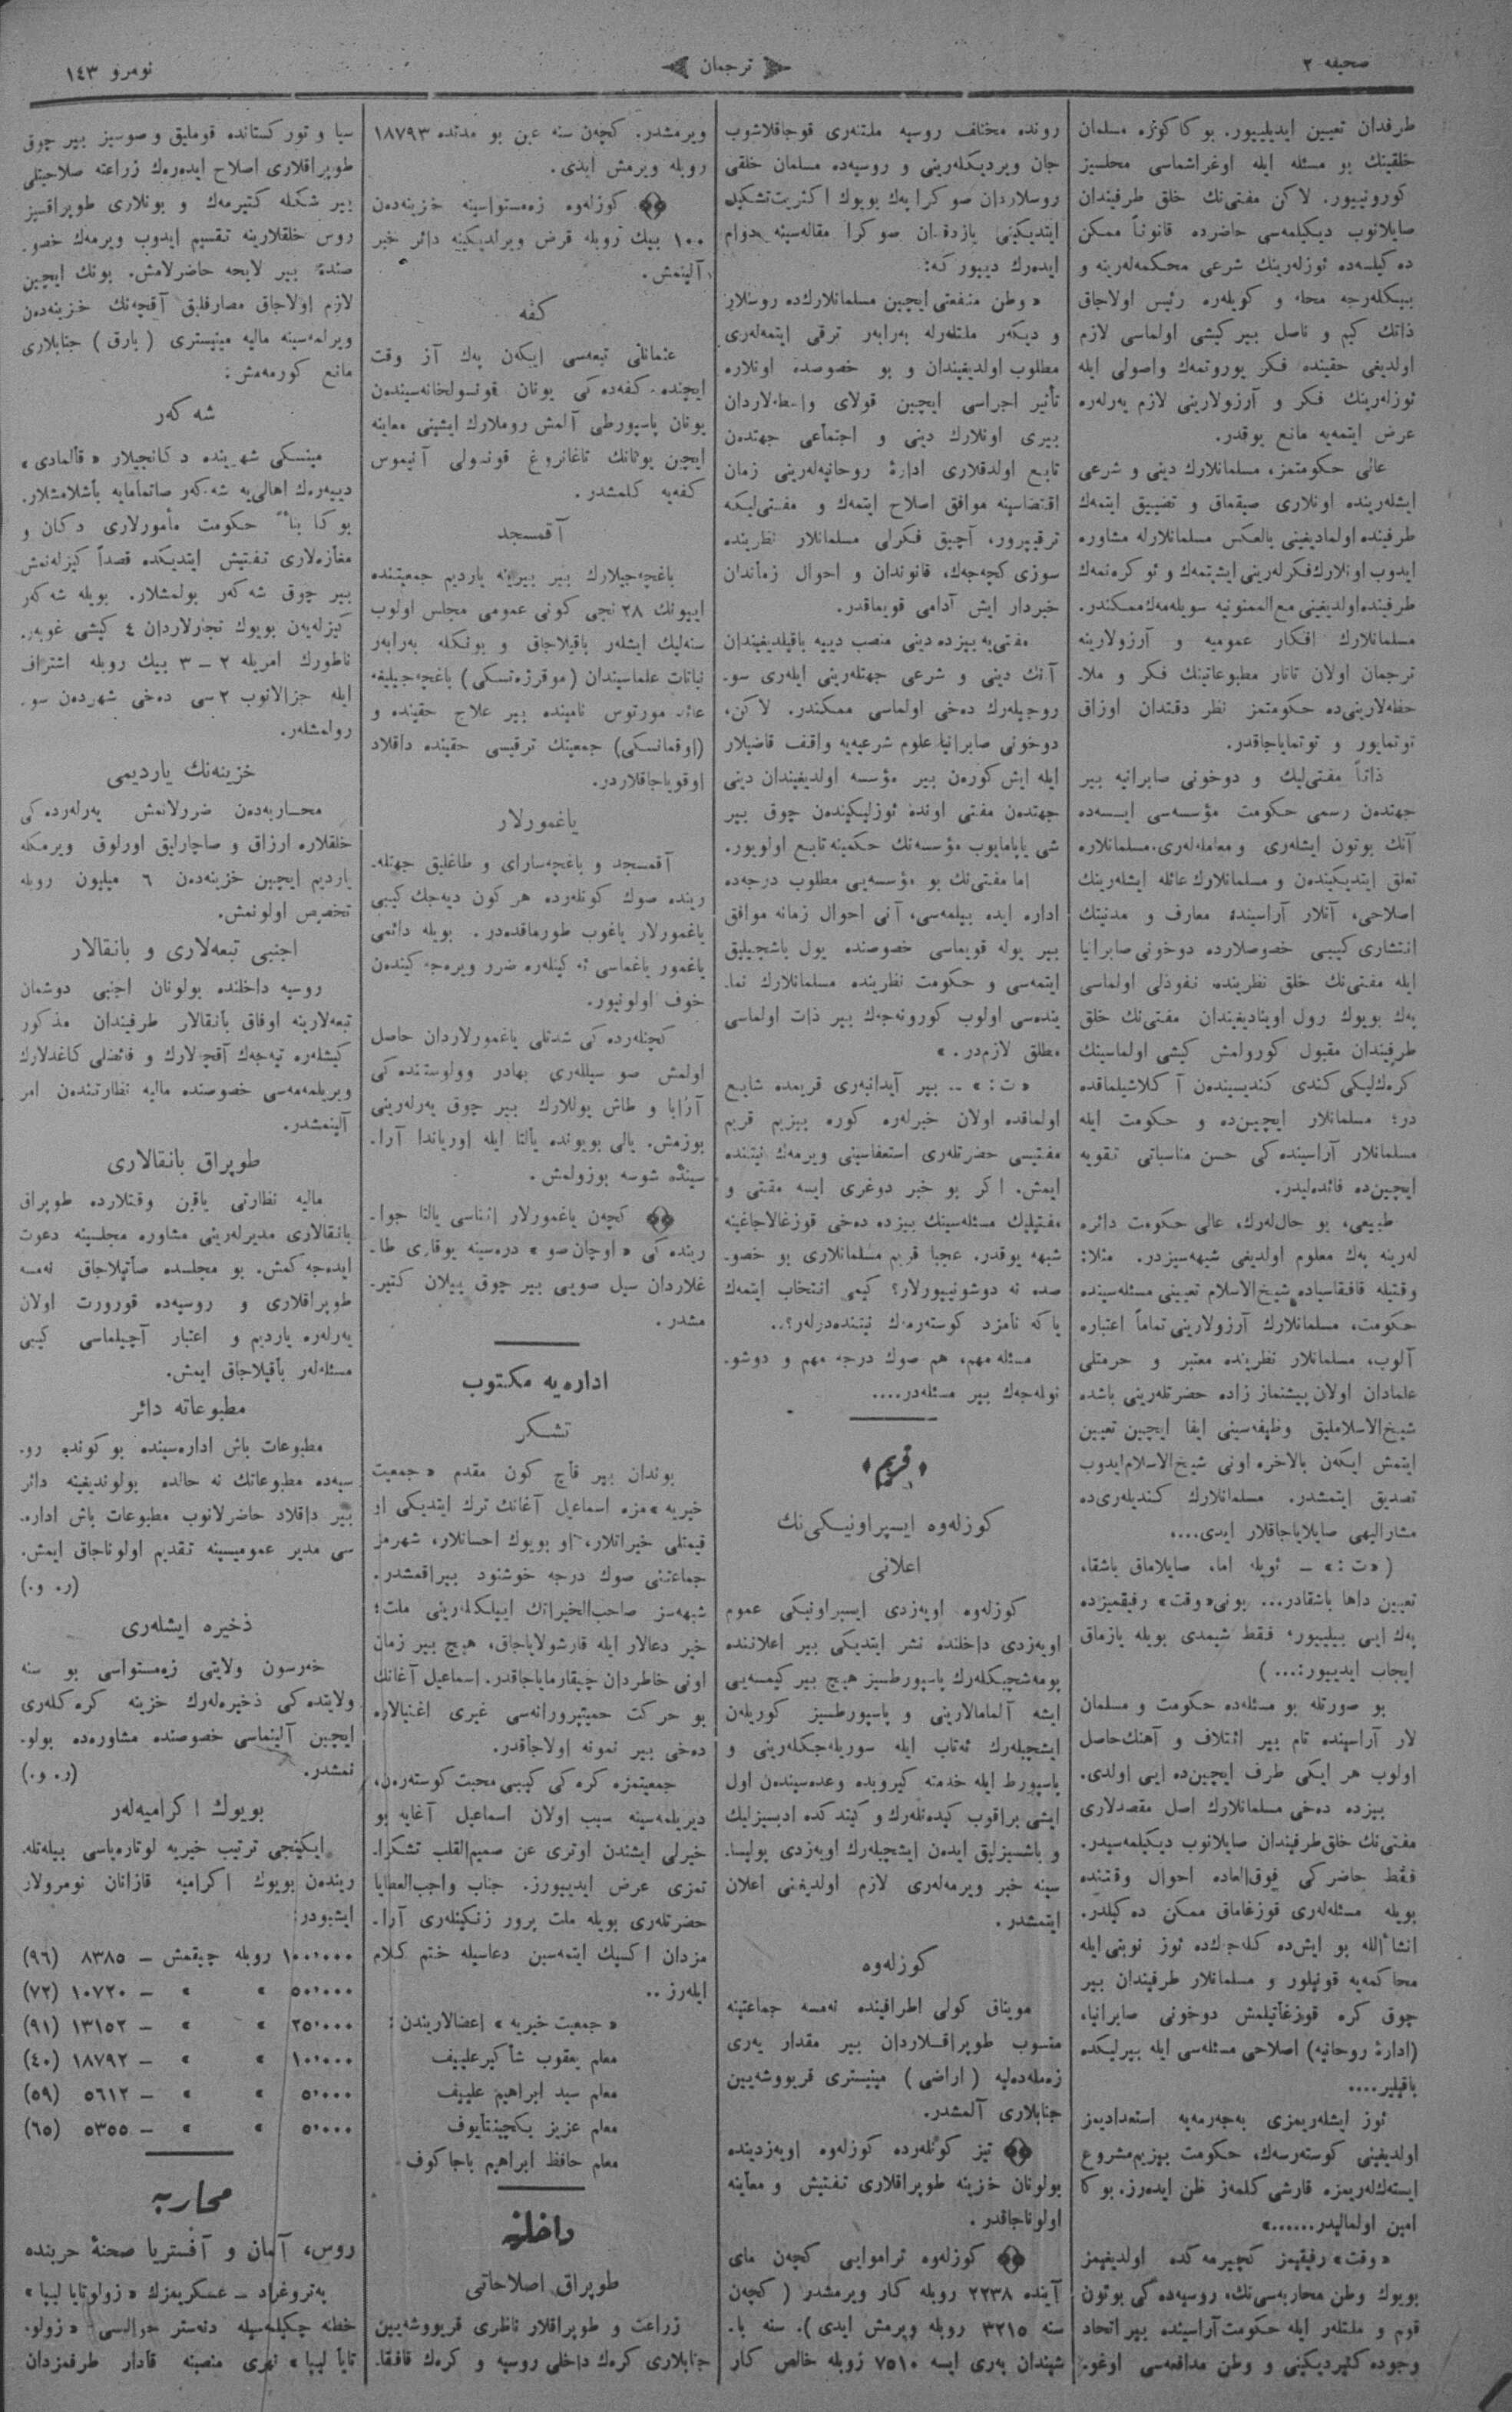 صحيفه ٢
ترجمان
نومرو ١٤٣
طرفدان تعيين ايديلييور. بوكا كوڭره مسلمان
خلقينك بو مسئله ايله اوغراشماسى محلسيز
كورونييور. لاكن مفتى‌نك خلق طرفيندان
صايلانوب ديكيلمه‌سى حاضرده قانوناً ممكن
ده كيلسه‌ده ئوزله‌رينك شرعى محكمه‌له‌رينه و
بيكله‌رجه محله و كويله‌ره رئيس اولاجاق
ذاتك كيم و ناصل بير كيشى اولماسى لازم
اولديغى حقينده فكر يوروتمه‌ك واصولى ايله
ئوزله‌رينك فكر و آرزولارينى لازم يه‌رله‌ره
عرض ايتمه‌يه مانع يوقدر.
عالى حكومتمز، مسلمانلارك دينى و شرعى
ايشله‌رينده اونلارى صيقماق و تضييق ايتمه‌ك
طرفينده اولماديغينى بالعكس مسلمانلارله مشاوره
ايدوب اونلارك فكرله‌رينى ايشيتمه‌ك و ئوكره‌نمه‌ك
طرفينده اولديغينى مع‌الممنونيه سويله‌مه‌ك ممكندر.
مسلمانلارك افكار عموميه و آرزولارينه
ترجمان اولان تاتار مطبوعاتينك فكر و ملا‌ـ
حظه‌لارينى‌ده حكومتمز نظر دقتدان اوزاق
توتمايور و توتماياجاقدر.
ذاتاً مفتى‌ليك و دوخونى صابرانيه بير
جهتدن رسمى حكومت مؤسسه‌سى ايسه‌ده
آنك بوتون ايشله‌رى و معامله‌له‌رى، مسلمانلاره
تعلق ايتديكيندن و مسلمانلارك عائله ايشله‌رينك
اصلاحى، آنلار آراسينده معارف و مدنيتك
انتشارى كيبى خصوصلارده دوخونى صابرانيا
ايله مفتى‌نك خلق نظرينده نفوذلى اولماسى
په‌ك بويوك رول اويناديغيندان مفتى‌نك خلق
طرفيندان مقبول كورولمش كيشى اولماسينك
كره‌ك‌ليكى كندى كنديسيندن آكلاشيلماقده
در؛ مسلمانلار ايچين‌ده و حكومت ايله
مسلمانلار آراسينده كى حسن مناسباتى تقويه
ايچين‌ده فائده‌ليدر.
طبيعى، بو حال‌له‌رك، عالى حكومت دائره
له‌رينه په‌ك معلوم اولديغى شبهه‌سيزدر. مثلا:
وقتيله قافقاسياده شيخ‌الاسلام تعيينى مسئله‌سينده
حكومت، مسلمانلارك آرزولارينى تماماً اعتباره
آلوب، مسلمانلار نظرينده معتبر و حرمتلى
علمادان اولان پيشنماز زاده حضرتله‌رينى باشده
شيخ‌الاسلامليق وظيفه‌سينى ايفا ايچين تعيين
ايتمش ايكه‌ن بالاخره اونى شيخ‌الاسلام ايدوب
تصديق ايتمشدر. مسلمانلارك كنديله‌رى‌ده
مشاراليهى صايلاياجاقلار ايدى....
( «ت:» ــ ئويله اما، صايلاماق باشقا،
تعيين داها باشقادر... بونى «وقت» رفيقميزده
په‌ك ايى بيلييور، فقط شيمدى بويله يازماق
ايجاب ايدييور:... )
بو صورتله بو مسئله‌ده حكومت و مسلمان
لار آراسينده تام بير ائتلاف و آهنك حاصل
اولوب هر ايكى طرف ايچين‌ده ايى اولدى.
بيزده ده‌خى مسلمانلارك اصل مقصدلارى
مفتى‌نك خلق طرفيندان صايلانوب ديكيلمه‌سيدر.
فقط حاضركى فوق‌العاده احوال وقتنده
بويله مسئله‌له‌رى قوزغاماق ممكن ده كيلدر.
انشاءالله بو ايش‌ده كله‌جك‌ده ئوز نوبتى ايله
محاكمه‌يه قونيلور و مسلمانلار طرفيندان بير
چوق كره قوزغاتيلمش دوخونى صابرانيا،
(ادارهٔ روحانيه) اصلاحى مسئله‌سى ايله بيرليكده
باقيلير....
ئوز ايشله‌ريمزى به‌جه‌رمه‌يه استعداديمز
اولديغينى كوسته‌رسه‌ك، حكومت بيزيم مشروع
ايسته‌ك‌له‌ريمزه قارشى كلمه‌ز ظن ايده‌رز. بوكا
امين اولماليدر......»
«وقت» رفيقمز كچيرمه‌كده اولديغمز
بويوك وطن محاربه‌سى‌نك، روسيه‌ده كى بوتون
قوم و ملتلر ايله حكومت آراسينده بير اتحاد
وجوده كتيرديكينى و وطن مدافعه‌سى اوغو‌ـ
رونده مختلف روسيه ملتله‌رى قوجاقلاشوب
جان ويرديكله‌رينى و روسيه‌ده مسلمان خلقى
روسلاردان صوكرا په‌ك بويوك اكثريت تشكيل
ايتديكينى يازدقدان صوكرا مقاله‌سينه دوام
ايده‌رك دييور كه:
« وطن منفعتى ايچين مسلمانلارك‌ده روسلار
و ديكه‌ر ملتله‌رله به‌رابه‌ر ترقى ايتمه‌له‌رى
مطلوب اولديغيندان و بو خصوصده اونلاره
تأثير اجراسى ايچين قولاى واسطه‌لاردان
بيرى اونلارك دينى و اجتماعى جهتدن
تابع اولدقلارى ادارهٔ روحانيه‌له‌رينى زمان
اقتضاسينه موافق اصلاح ايتمه‌ك و مفتى‌ليكه
ترقيپرور، آچيق فكرلى مسلمانلار نظرينده
سوزى كچه‌جه‌ك، قانوندان و احوال زماندان
خبردار ايش آدامى قويماقدر.
مفتى‌يه بيزده دينى منصب دييه باقيلديغيندان
آنك دينى و شرعى جهتله‌رينى ايله‌رى سو‌ـ
روجيله‌رك ده‌خى اولماسى ممكندر. لاكن،
دوخونى صابرانيا علوم شرعيه‌يه واقف قاضيلار
ايله ايش كوره‌ن بير مؤسسه اولديغيندان دينى
جهتدن مفتى اونده ئوزليكيندن چوق بير
شى ياپامايوب مؤسسه‌نك حكمينه تابع اولويور.
اما مفتى‌نك بو مؤسسه‌يى مطلوب درجه‌ده
اداره ايده بيلمه‌سى، آنى احوال زمانه موافق
بير يوله قويماسى خصوصنده يول باشچيليق
ايتمه‌سى و حكومت نظرينده مسلمانلارك نما‌ـ
ينده‌سى اولوب كورونه‌جه‌ك بير ذات اولماسى
مطلق لازمدر. »
«ت:» ـــ بير آيدانبه‌رى قريمده شايع
اولماقده اولان خبرله‌ره كوره بيزيم قريم
مفتيسى حضرتله‌رى استعفاسينى ويرمه‌ك نيتنده
ايمش. اكر بو خبر دوغرى ايسه مفتى و
مفتيليك مسئله‌سينك بيزده ده‌خى قوزغالاجاغينه
شبهه يوقدر. عجبا قريم مسلمانلارى بو خصو‌ـ
صده نه دوشونييورلار؟ كيمى انتخاب ايتمه‌ك
ياكه نامزد كوسته‌رمه‌ك نيتنده‌درله‌ر؟..
مسئله مهم، هم صوك درجه مهم و دوشو‌ـ
نوله‌جه‌ك بير مسئله‌در....
﴿قريم﴾
كوزله‌وه ايسپراونيكى‌نك
اعلانى
كوزله‌وه اويه‌زدى ايسپراونيكى عموم
اويه‌زدى داخلنده نشر ايتديكى بير اعلاننده
پومه‌شچيكله‌رك پاسپورطسيز هيچ بير كيمسه‌يى
ايشه آلمامالارينى و پاسپورطسيز كوريله‌ن
ايشچيله‌رك ئه‌تاب ايله سوريله‌جكله‌رينى و
پاسپورط ايله خدمته كيروبده وعده‌سيندن اول
ايشى براقوب كيده‌نله‌رك و كيتدكده ادبسيزليك
و باشسيزليق ايده‌ن ايشچيله‌رك اويه‌زدى پوليسا‌ـ
سينه خبر ويرمه‌له‌رى لازم اولديغنى اعلان
ايتمشدر.
كوزله‌وه
مويناق كولى اطرافينده نه‌مسه جماعتينه
منسوب طوپراقلاردان بير مقدار يه‌رى
زه‌مله‌ده‌ليه (اراضى) مينيسترى قريووشه‌يين
جنابلارى آلمشدر.
تيز كونله‌رده كوزله‌وه اويه‌زدينده
بولونان خزينه طوپراقلارى تفتيش و معاينه
اولوناجاقدر.
كوزله‌وه تراموايى كچه‌ن ماى
آينده ٢٢٣٨ روبله كار ويرمشدر (كچه‌ن
سنه ٣٢١٥ روبله ويرمش ايدى). سنه با‌ـ
شيندان به‌رى ايسه ٧٥١٠ روبله خالص كار
ويرمشدر. كچه‌ن سنه عين بو مدتده ١٨٧٩٣
روبله ويرمش ايدى.
كوزله‌وه زه‌مستواسينه خزينه‌دن
١٠٠ بيك روبله قرض ويرلديكينه دائر خبر
آلينمش.
كفه
عثمانلى تبعه‌سى ايكه‌ن په‌ك آز وقت
ايچنده كفه‌ده كى يونان قونسولخانه‌سيندن
يونان پاسپورطى آلمش روملارك ايشينى معاينه
ايچين يونانك تاغانروغ قونسولى آنيموس
كفه‌يه كلمشدر.
آقمسجد
باغچه‌جيلارك بير بيرينه يارديم جمعيتنده
اييونك ٢٨ نجى كونى عمومى مجلس اولوب
سنه‌ليك ايشلر باقيلاجاق و بونكله به‌رابه‌ر
نباتات علماسيندان (موقرژه‌تسكى) باغچه‌جيليغه
عائد مورتوس نامينده بير علاج حقينده و
(اوقمانسكى) جمعيتك ترقيسى حقينده داقلاد
اوقوياجاقلاردر.
ياغمورلار
آقمسجد و باغچه‌ساراى و طاغليق جهتله‌ـ
رينده صوك كونله‌رده هر كون ديه‌جك كيبى
ياغمورلار ياغوب طورماقده‌در. بويله دائمى
ياغمور ياغماسى ئه‌كينله‌ره ضرر ويره‌جه‌كيندن
خوف اولونيور.
كچنله‌رده كى شدتلى ياغمورلاردان حاصل
اولمش صو سيلله‌رى بهادر وولوستنده كى
آرابا و طاش يوللارك بير چوق يه‌رله‌رينى
بوزمش. يالى بويونده يالتا ايله اورياندا آرا‌ـ
سينده شوسه بوزولمش.
كچه‌ن ياغمورلار اثناسى يالتا جوا‌ـ
رينده كى «اوچان‌صو» دره‌سينه يوقارى طا‌ـ
غلاردان سيل صويى بير چوق ييلان كتير‌ـ
مشدر.
اداره‌يه مكتوب
تشكر
بوندان بير قاچ كون مقدم «جمعيت
خيريه»مزه اسماعيل آغانك ترك ايتديكى او
قيمتلى خيراتلار، او بويوك احسانلار، شهرمز
جماعتنى صوك درجه خوشنود بيراقمشدر.
شبهه‌سز صاحب‌الخيراتك اييلكله‌رينى ملت؛
خير دعالار ايله قارشولاياجاق، هيچ بير زمان
اونى خاطردان چيقارماياجاقدر. اسماعيل آغانك
بو حركت حميتپرورانه‌سى غيرى اغنيالاره
ده‌خى بير نمونه اولاجاقدر.
جمعيتمزه كره‌كى كيبى محبت كوسته‌ره‌ن،
ديريلمه‌سينه سبب اولان اسماعيل آغايه بو
خيرلى ايشندن اوترى عن صميم‌القلب تشكرا‌ـ
تمزى عرض ايدييورز. جناب واجب‌العطايا
حضرتله‌رى بويله ملت پرور زنكينله‌رى آرا‌ـ
مزدان اكسيك ايتمه‌سين دعاسيله ختم كلام
ايله‌رز..
« جمعيت خيريه » اعضالاريندن:
معلم يعقوب شاكيرعلييف
معلم سيد ابراهيم علييف
معلم عزيز يكچينتايوف
معلم حافظ ابراهيم باجاكوف
داخليه
طوپراق اصلاحاتى
زراعت و طوپراقلار ناظرى قريووشه‌يين
جنابلارى كرك داخلى روسيه و كرك قافقا‌ـ
سيا و توركستانده قومليق و صوسيز بير چوق
طوپراقلارى اصلاح ايده‌رك زراعته صلاحيتلى
بير شكله كتيرمه‌ك و بونلارى طوپراقسيز
روس خلقلارينه تقسيم ايدوب ويرمه‌ك خصو‌ـ
صنده بير لايحه حاضرلامش. بونك ايچين
لازم اولاجاق مصارفليق آقچه‌نك خزينه‌دن
ويرلمه‌سينه ماليه مينيسترى (بارق) جنابلارى
مانع كورمه‌مش.
شه‌كه‌ر
مينسكى شهرينده دكانجيلار «قالمادى»
دييه‌رك اهالى‌يه شه‌كه‌ر صاتمامايه باشلامشلار.
بوكا بناءً حكومت مأمورلارى دكان و
مغازه‌لارى تفتيش ايتديكده قصداً كيزله‌نمش
بير چوق شه‌كه‌ر بولمشلار. بويله شه‌كه‌ر
كيزله‌يه‌ن بويوك تجارلاردان ٤ كيشى غوبه‌ر‌ـ
ناطورك امريله ٢ ــ ٣ بيك روبله اشتراف
ايله جزالانوب ٢سى ده‌خى شهردن سو‌ـ
رولمشله‌ر.
خزينه‌نك يارديمى
محاربه‌دن ضررلانمش يه‌رله‌رده كى
خلقلاره ارزاق و صاچارليق اورلوق ويرمكله
يارديم ايچين خزينه‌دن ٦ ميليون روبله
تخصيص اولونمش.
اجنبى تبعه‌لارى و بانقالار
روسيه داخلنده بولونان اجنبى دوشمان
تبعه‌لارينه اوفاق بانقالار طرفيندان مذكور
كيشله‌ره تيه‌جه‌ك آقچه‌لارك و فائضلى كاغدلارك
ويريلمه‌مه‌سى خصوصنده ماليه نظارتندن امر
آلينمشدر.
طوپراق بانقالارى
ماليه نظارتى ياقين وقتلارده طوپراق
بانقالارى مديرله‌رينى مشاوره مجلسينه دعوت
ايده‌جه‌كمش. بو مجلسده صاتيلاجاق نه‌مسه
طوپراقلارى و روسيه‌ده قورورت اولان
يه‌رله‌ره يارديم و اعتبار آچيلماسى كيبى
مسئله‌له‌ر باقيلاجاق ايمش.
مطبوعاته دائر
مطبوعات باش اداره‌سينده بو كونده رو‌ـ
سيه‌ده مطبوعاتك نه حالده بولونديغينه دائر
بير داقلاد حاضرلانوب مطبوعات باش اداره‌ـ
سى مدير عموميسينه تقديم اولوناجاق ايمش.
(ر. و.)
ذخيره ايشله‌رى
خه‌رسون ولايتى زه‌مستواسى بو سنه
ولايتده كى ذخيره‌له‌رك خزينه كره‌كله‌رى
ايچين آلينماسى خصوصنده مشاوره‌ده بولو‌ـ
نمشدر. (ر. و.)
بويوك اكراميه‌له‌ر
ايكينجى ترتيب خيريه لوتاره‌ياسى بيله‌تله‌ـ
ريندن بويوك اكراميه قازانان نومرولار
ايشبودر:
١٠٠٬٠٠٠ روبله چيقمش ــ ٨٣٨٥ (٩٦)
٥٠٬٠٠٠ » » ــ ١٠٧٢٠ (٧٢)
٢٥٬٠٠٠ » » ــ ١٣١٥٢ (٩١)
١٠٬٠٠٠ » » ــ ١٨٧٩٢ (٤٠)
٥٬٠٠٠ » » ــ ٥٦١٢ (٥٩)
٥٬٠٠٠ » » ــ ٥٣٥٥ (٦٥)
محاربه
روس، آلمان و آفستريا صحنهٔ حربنده
په‌تروغراد ــ عسكريمزك «زولوتايا ليپا»
خطنه چكيلمه‌سيله دنه‌ستر حواليسى «زولو‌ـ
تايا ليپا» نهرى منصبنه قادار طرفمزدان